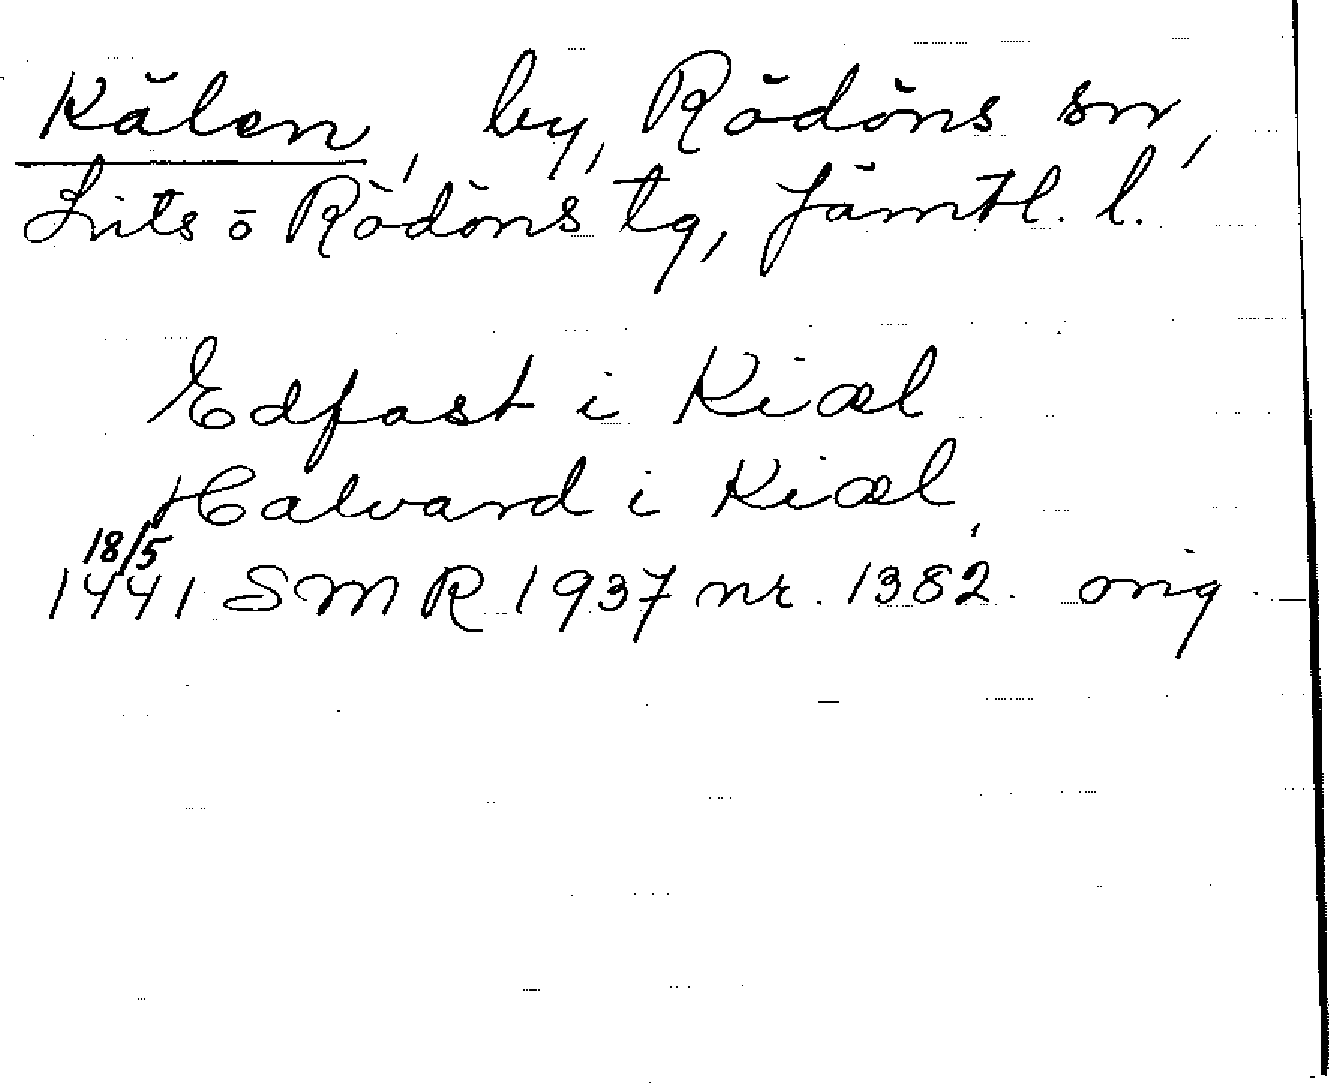 Kälen, by, Rödöns sn,
Lits o Rödöns tg, Jämtl. l.
Edfast i Kiæl
Halvard i Kiæl,
18/5
1441 SMR 1937 nr. 1382. orig